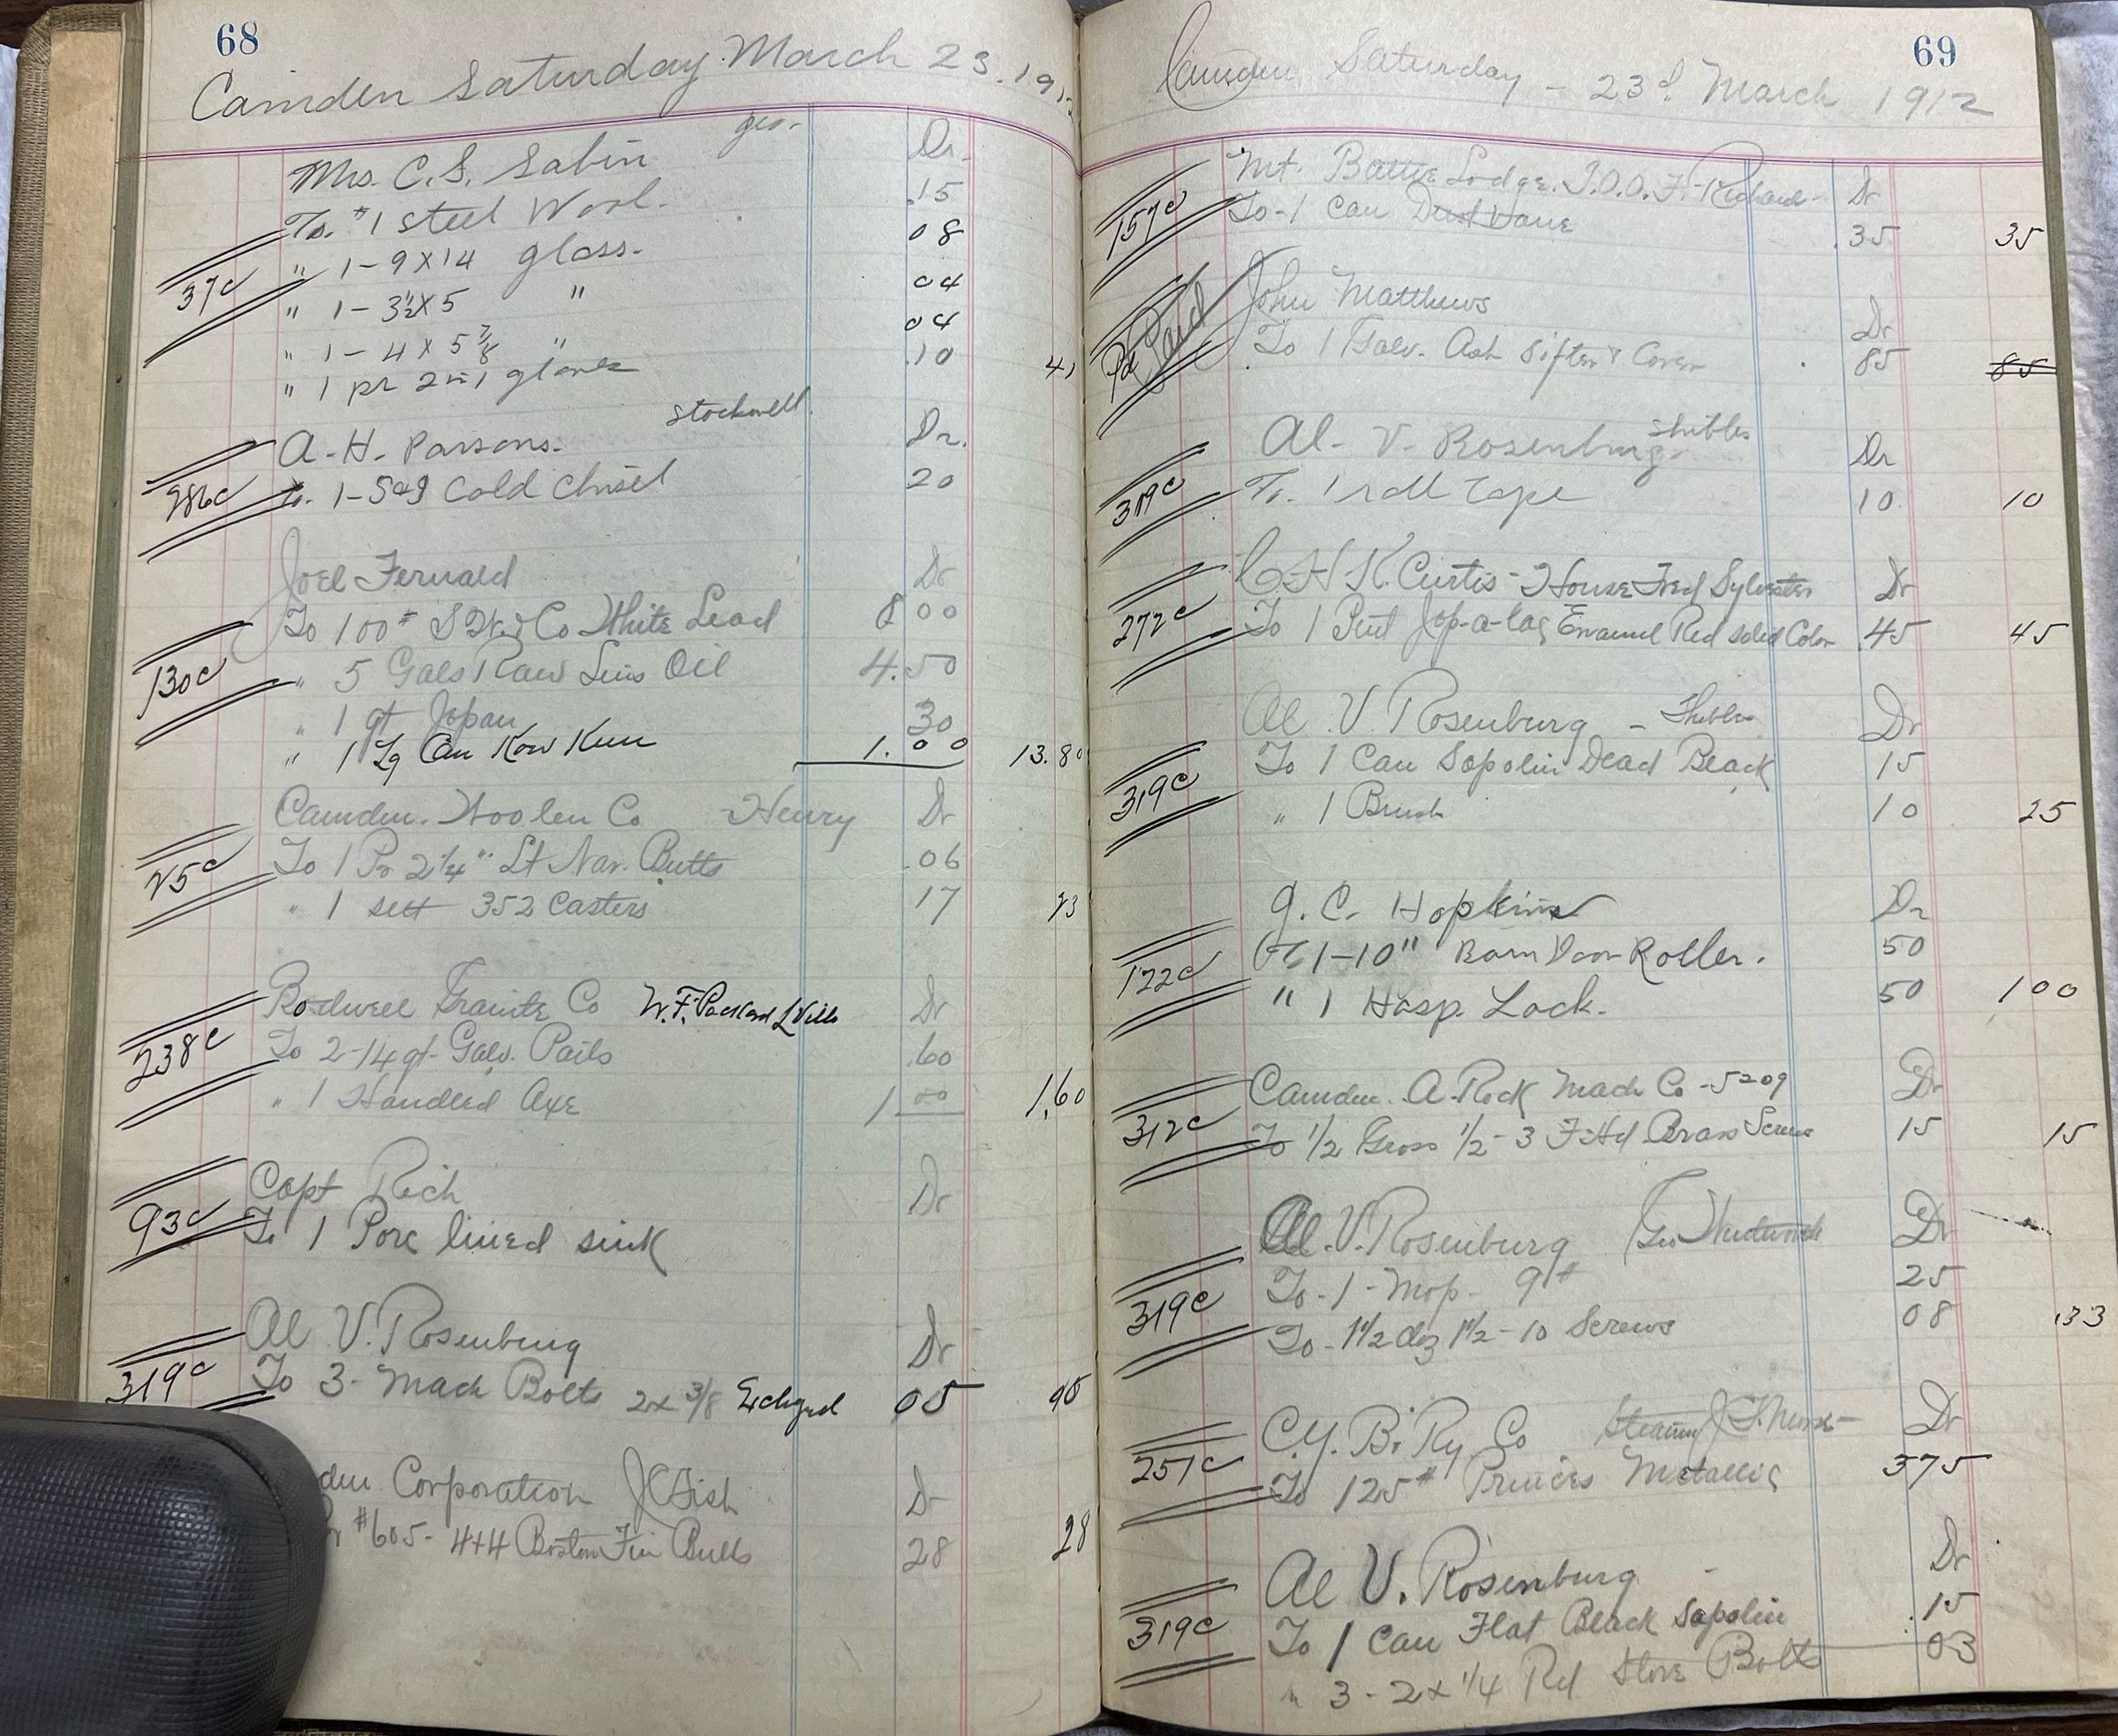 68
Camden Saturday March 23. 191
geo-
Mrs. C. S. Sabin Dr.
To. #1 Steel Wool. .15
37c " 1-9X14 glass. 08
" 1-3½X5 " 04
" 1-4X5⅞ " 04
" 1 pr 2 in 1 gloves .10 41
Stockwell
A. H. Parsons. Dr.
286c To. 1-5/8 Cold Chisel 20
Joel Fernald Dr
To 100# S W & Co White Lead 8 00
130c " 5 Gals Raw Lins Oil 4.50
" 1 qt Japan 30
" 1 Lg Can Kow Kure 1.00 13.80
Camden Woolen Co Henry Dr
25c To 1 Pr 2¼" Lt Nar. Butts .06
" 1 sett 352 Casters 17 23
Bodwell Granite Co W. F. Packard Dr
238c To 2-14 qt Galv. Pails .60
" 1 Handled Axe 1 00 1,60
Capt Rich Dr
93c To 1 Porc lined sink
Al V. Rosenburg Dr
319c To 3- Mach Bolts 2x3/8 Exchged 05 05
den Corporation J C Fish Dr
Pr #605- 4x4 Boston Fin Butts 28 28
69
Camden Saturday - 23d March 1912
Mt. Battie Lodge. I.O.O.F. Richards- Dr
157c To-1 Can .35 35
John Matthews Dr
Pd Paid To 1 Galv. Ash Sifter & Cover 85 85
Al- V- Rosenburg- Shibles Dr
319c To. 1 roll Tape 10 10
C H K Curtis- House Fred Sylvester Dr
272c To 1 Pint Jap-a-lac Enamel Red solid Color .45 45
Al V Rosenburg - Shibles Dr
To 1 Can Sapolin Dead Black 15
319c " 1 Brush 10 25
G. C. Hopkins Dr
122c To 1-10" Barn Door Roller. 50
" 1 Hasp. Lock. 50 100
Camden A. Rock Mach Co -5209 Dr
312c To ½ Gross ½-3 F Hd Brass Screws 15 15
Al. V. Rosenburg Geo Dr
To-1-Mop- 9# 25
319c To-1½ doz 1½-10 Screws 08 .33
C.Y.B. Ry. Co Steamer J. T. Morse- Dr
251c To 125# Princes Metallic 375
Al V. Rosenburg Dr
319c To 1 Can Flat Black Sapolin .15
" 3-2x¼ Rd Stove Bolts 03